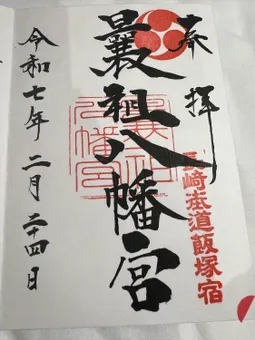 奉拝
長崎街道飯塚宿
曩祖八幡宮
令和七年二月二十四日